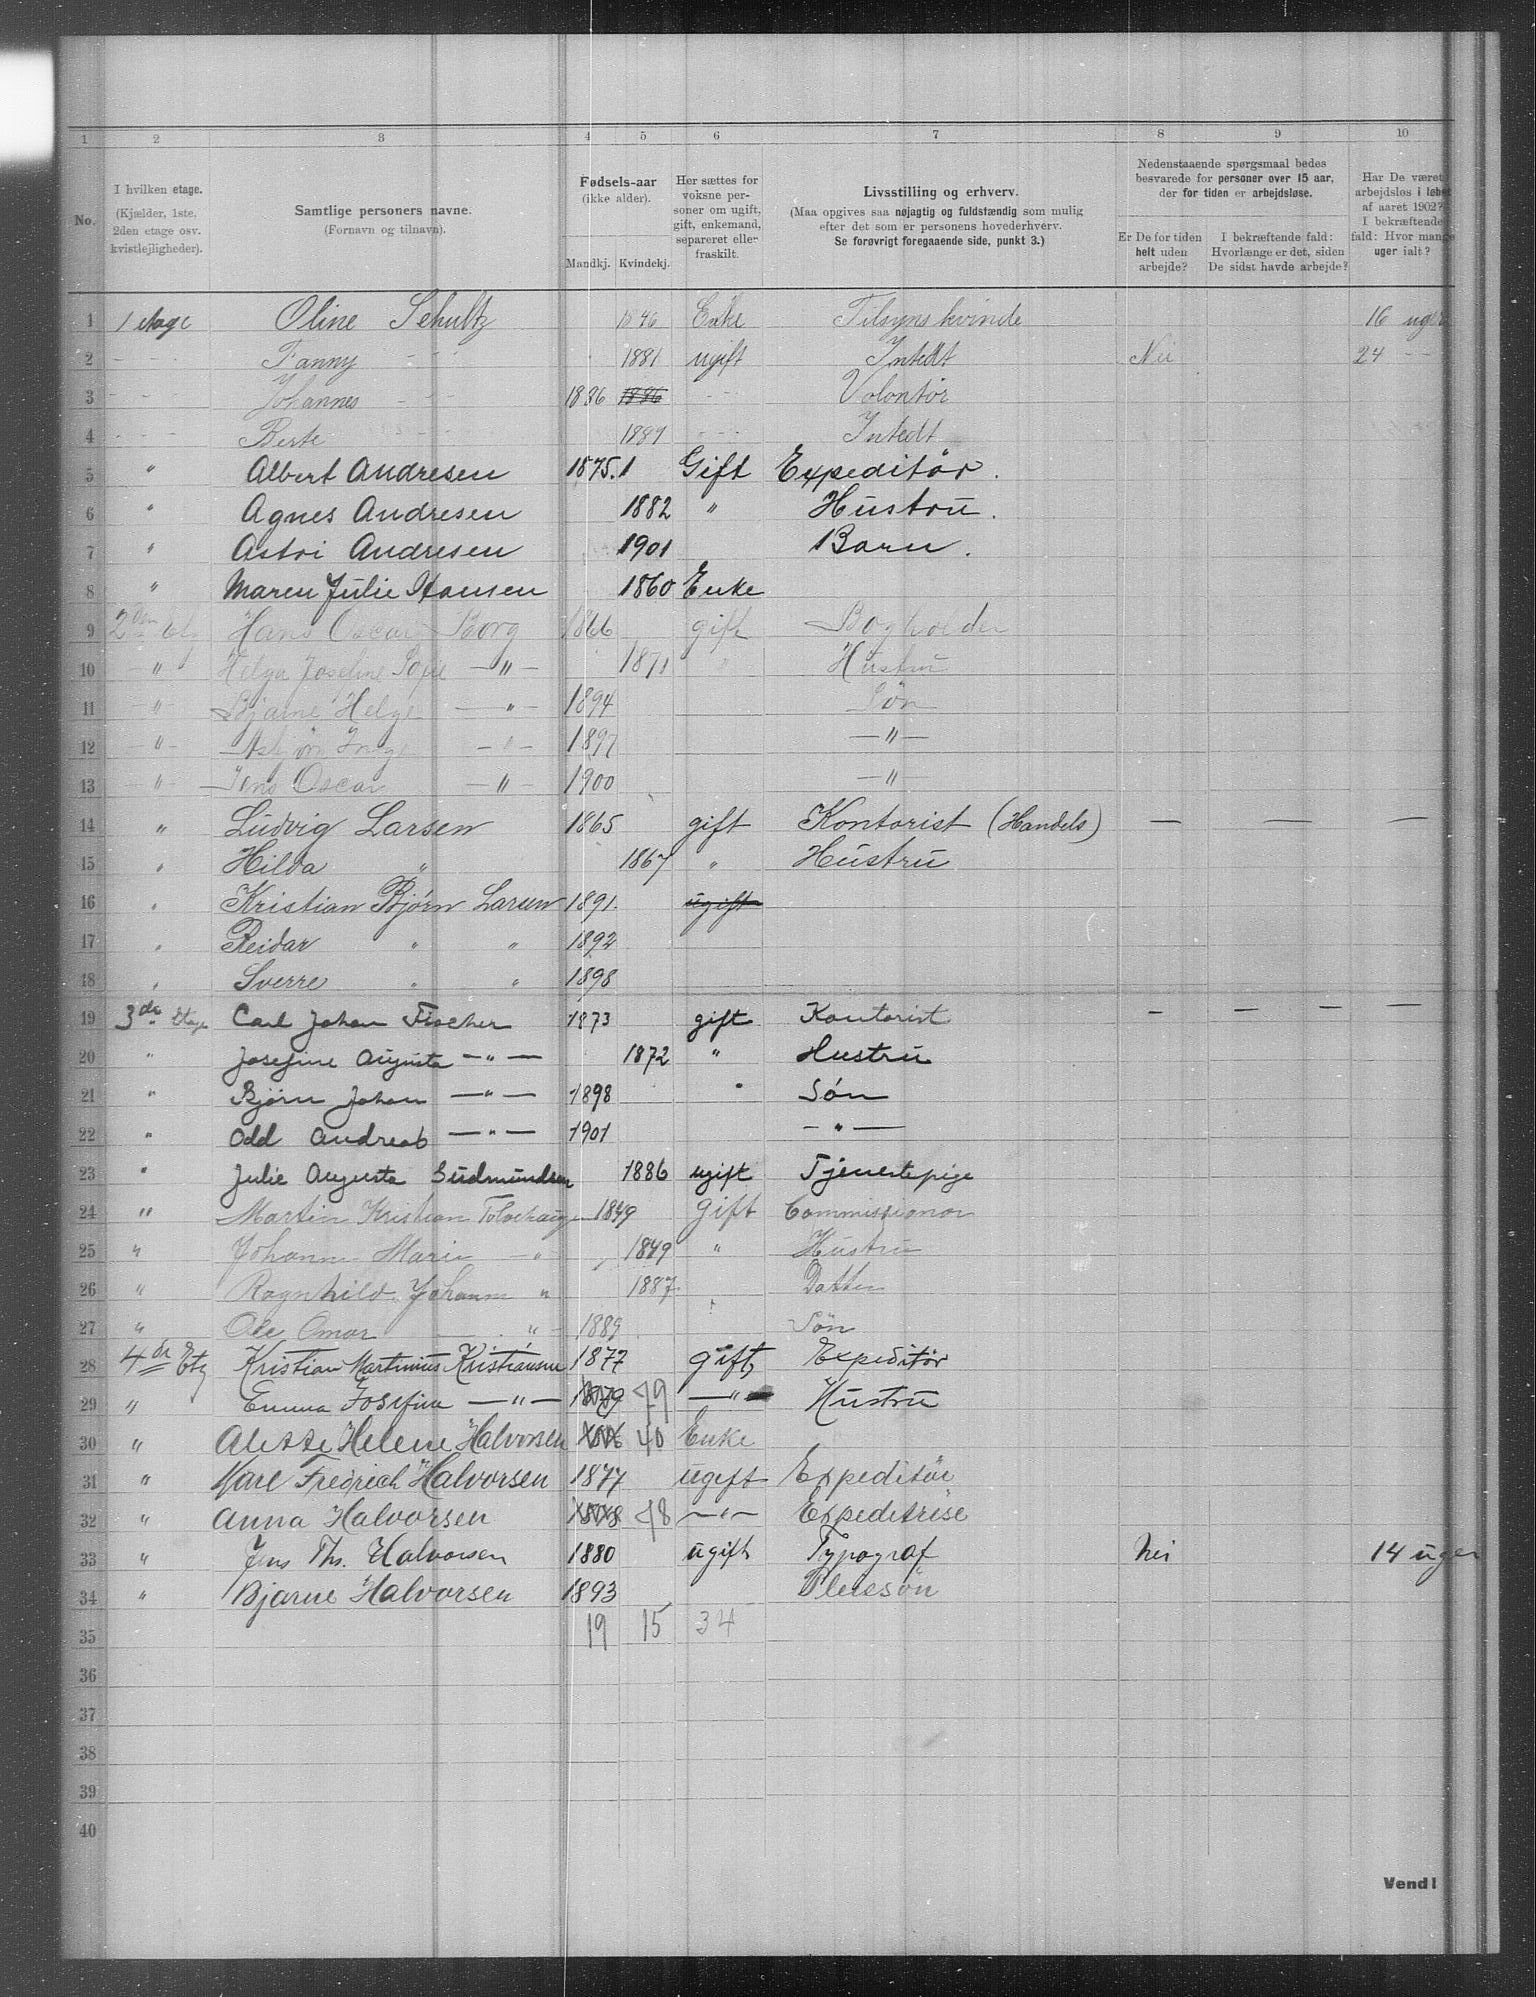 1 2 3 4 5 6 7 8 9 10
No. I hvilken etage. (Kjælder, 1ste, 2den etage osv. kvistlejligheder).
Samtlige personers navne. (Fornavn og tilnavn).
Fødsels-aar (ikke alder). Mandkj. Kvindekj.
Her sættes for voksne personer om ugift, gift, enkemand, separeret eller fraskilt.
Livsstilling og erhverv. (Maa opgives saa nøjagtig og fuldstændig som mulig efter det som er personens hovederhverv. Se forøvrigt foregaaende side, punkt 3.)
Nedenstaaende spørgsmaal bedes besvarede for personer over 15 aar, der for tiden er arbejdsløse.
Er De for tiden helt uden arbejde?
I bekræftende fald: Hvorlænge er det, siden De sidst havde arbejde?
Har De været arbejdsløs i løbet af aaret 1902? I bekræftende fald: Hvor mange uger ialt?
1 1 etage Oline Schultz 1846 Enke Tilsynskvinde 16 uger
2 - - - Fanny - - - 1881 ugift Intedt Nei 24 - -
3 - - Johannes - - - 1886 1886 - - - Volontør
4 - - - Berte - - - 1889 - - - Intedt
5 " Albert Andresen 1875. 1 Gift Expeditør.
6 " Agnes Andresen 1882 " Hustru.
7 " Astri Andresen 1901 Barn.
8 " Maren Julie Hansen 1860 Enke
9 2den Etg Hans Oscar Borg 1866 gift Bogholder
10 - " - Helga Josefine — " — 1871 " Hustru
11 - " - Bjarne Helge — " — 1894 Søn
12 - " - - " - 1897 — " —
13 - " - Jens Oscar — " — 1900 — " —
14 " Ludvig Larsen 1865 gift Kontorist (Handels) — — —
15 " Hilda " 1867 " Hustru
16 " Kristian Bjørn Larsen 1891. ugift
17 " Reidar " " 1892
18 " Sverre " " 1898
19 3die Etage Carl Johan Fischer 1873 gift Kontorist — — — —
20 " Josefine Augusta — " — 1872 " Hustru
21 " Bjørn Johan — " — 1898 " Søn
22 " Odd Andreas — " — 1901 — " —
23 " Julie Augusta Gudmundsen 1886 ugift Tjenestepige
24 " Martin Kristian 1849 Gift Commissionær
25 " Johanne Marie — " 1849 " Hustru
26 " Ragnhild Johanne " 1887. Datter
27 " Ole Omar — " - 1889 Søn
28 4de Etg Kristian Martinius Kristiansen 1877 gift Expeditør
29 " Emma Josefine — " — 1879 79 — " — Hustru
30 " Alette Helene Halvorsen 40 Enke
31 " Karl Fredrich Halvorsen 1877 ugift Expeditør
32 " Anna Halvorsen 1878 78 — " — Expeditrise
33 " Jens Th. Halvorsen 1880 ugift Typograf Nei 14 uger
34 " Bjarne Halvorsen 1893 Pleiesøn
35 19 15 34
36
37
38
39
40
Vend!